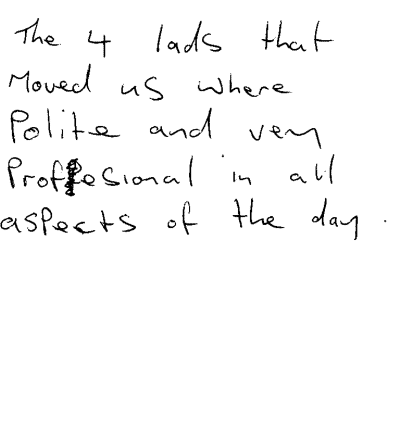 The 4 lads that
Moved us where
Polite and very
Proffesional in all
aspects of the day.